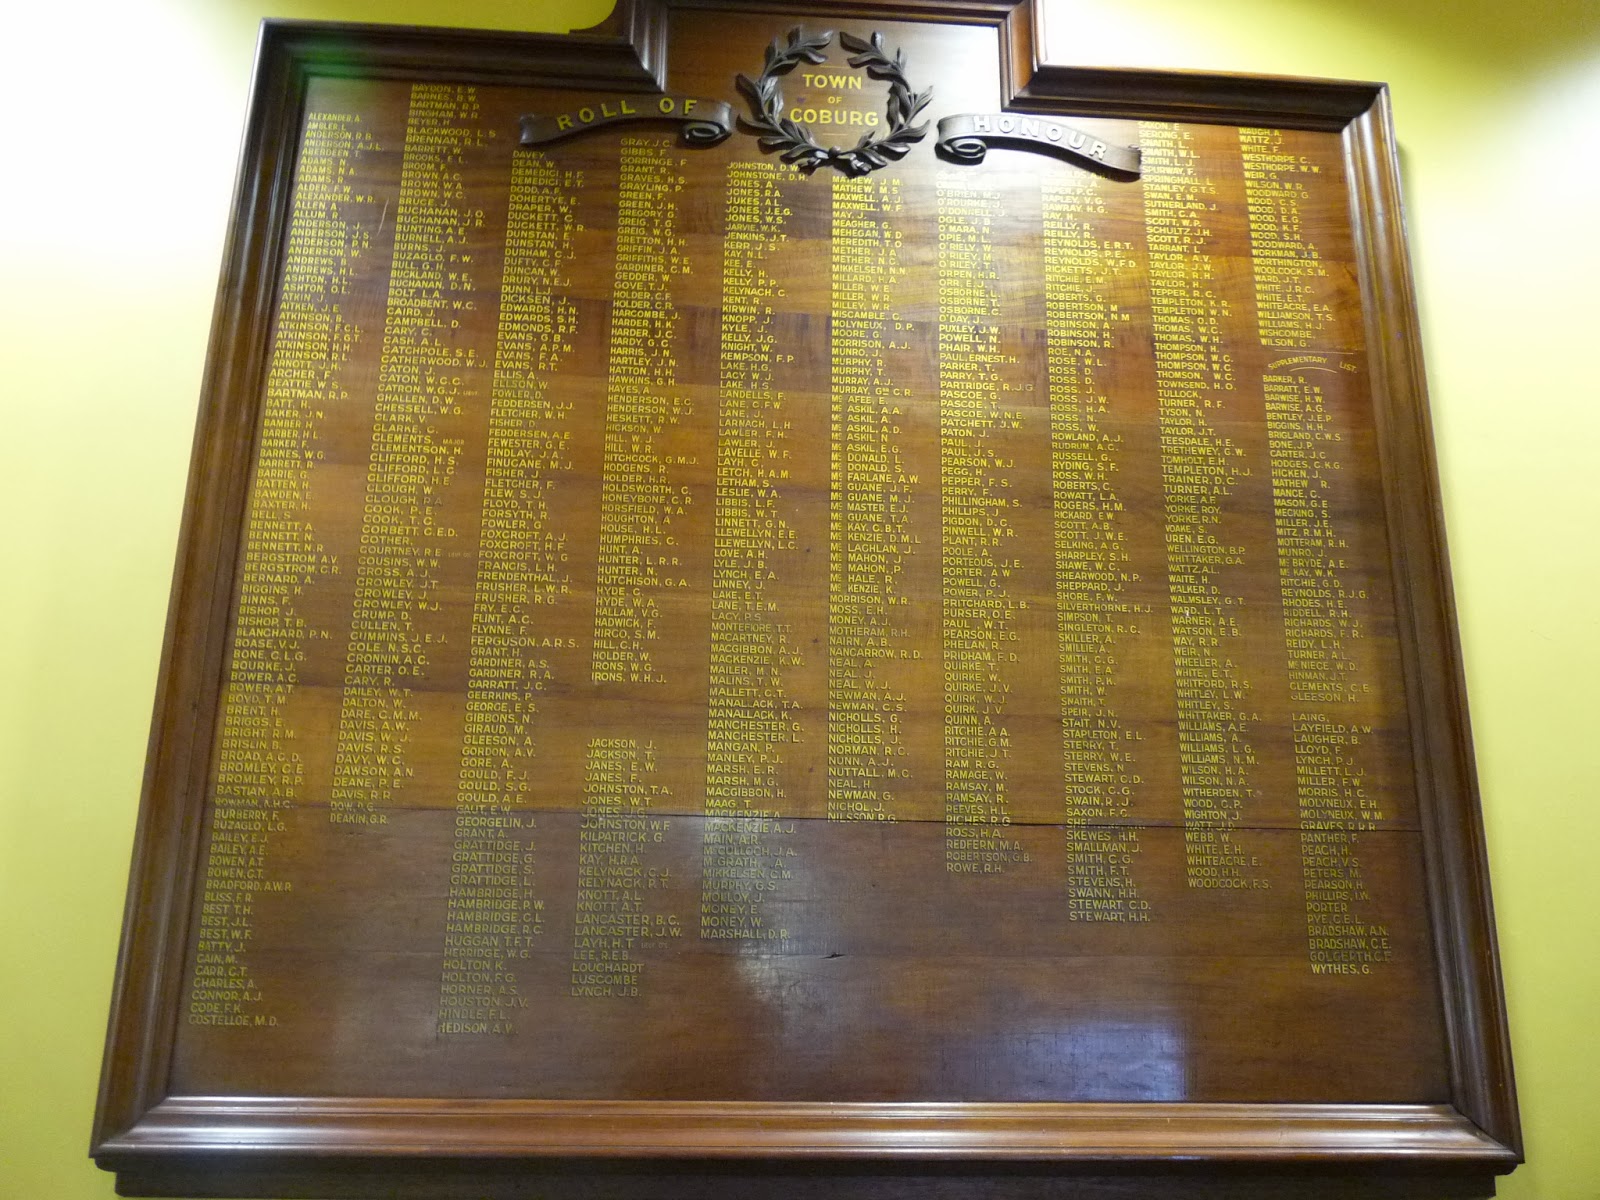 TOWN
OF
COBURG
ROLL OF
HONOUR
ALEXANDER, A.
AMBLER, L.
ANDERSON, R.B.
ANDERSON, A.J.L.
ABERDEEN, T.
ADAMS, N.
ADAMS, N.A.
ADAMS, R.
ALDER, F.W.
ALEXANDER, W.R.
ALLEN, A.
ALLUM, R.
ANDERSON, J.
ANDERSON, J.S.
ANDERSON, P.N.
ANDERSON, W.
ANDREWS, H.
ANDREWS, H.L.
ASHTON, H.L.
ASHTON, G.
ATKIN, J.
AITKEN, J.E.
ATKINSON, B.
ATKINSON, F.C.L.
ATKINSON, F.G.T.
ATKINSON, H.H.
ATKINSON, R.L.
ARNOTT, J.
ARCHER, F.
BEATTIE, W.S.
BARTMAN, R.P.
BATT, H.
BAKER, J.N.
BAMBER, H.
BARBER, H.L.
BARKER, F.
BARNES, W.G.
BARRETT, R.
BARRIE, G.
BATTEN, F.
BAWDEN, E.
BAXTER, H.
BELL, S.
BENNETT, A.
BENNETT, N.
BENNETT, N.R.
BERGSTROM, A.V.
BERGSTROM, C.R.
BERNARD, A.
BIGGINS, H.
BINNS, F.
BISHOP, J.
BISHOP, T.B.
BLANCHARD, P.N.
BOASE, V.J.
BONE, C.L.G.
BOURKE, J.
BOWER, A.C.
BOWER, A.T.
BOYD, T.M.
BRENT, H.
BRIGGS, E.
BRIGHT, R.M.
BRISLIN, B.
BROAD, A.C.D.
BROMLEY, C.E.
BROMLEY, R.P.
BASTIAN, A.B.
BOWMAN, A.H.C.
BURBERRY, F.
BUZAGLO, L.G.
BAILEY, E.J.
BAILEY, A.E.
BOWEN, A.T.
BOWEN, G.T.
BRADFORD, A.W.P.
BLISS, F.R.
BEST, T.H.
BEST, J.L.
BEST, W.F.
BATTY, J.
CAIN, M.
CARR, C.T.
CHARLES, A.
CONNOR, A.J.
CODE, F.K.
COSTELLOE, M.D.
BAYDON, E.W.
BARNES, B.W.
BARTMAN, R.P.
BINGHAM, W.R.
BEYER, H.
BLACKWOOD, L.S.
BRENNAN, R.L.
BARRETT, W.
BROOKS, E.L.
BROOM, F.
BROWN, A.C.
BROWN, W.A.
BROWN, W.C.
BRUCE, J.
BUCHANAN, J.O.
BUCHANAN, J.R.
BUNTING, A.E.
BURNELL, A.J.
BURNS, J.
BUZAGLO, F.W.
BULL, G.H.
BUCKLAND, W.E.
BUCHANAN, D.N.
BOLT, L.A.
BROADBENT, W.C.
CAIRD, J.
CAMPBELL, D.
CARY, C.
CASH, A.L.
CATCHPOLE, S.E.
CATHERWOOD, W.J.
CATON, J.
CATON, W.C.C.
CATRON, W.G.J.
CHALLEN, D.W.
CHESSELL, W.G.
CLARK, V.
CLARKE, C.
CLEMENTS, MAJOR
CLEMENTSON, H.
CLIFFORD, H.S.
CLIFFORD, L.F.
CLIFFORD, H.E.
CLOUGH, W.
CLOUGH, R.A.
COOK, P.E.
COOK, T.C.
CORBETT, C.E.D.
COTHER,
COURTNEY, R.E.
COUSINS, W.W.
CROSS, A.J.
CROWLEY, J.T.
CROWLEY, J.
CROWLEY, W.J.
CRUMP, D.
CULLEN, T.
CUMMINS, J.E.J.
COLE, N.S.C.
CRONNIN, A.C.
CARTER, O.E.
CARY, R.
DAILEY, W.T.
DALTON, W.
DARE, C.M.M.
DAVIS, A.W.
DAVIS, W.J.
DAVIS, R.S.
DAVY, W.C.
DAWSON, A.N.
DEANE, P.E.
DAVIS, R.R.
DOW, D.G.
DEAKIN, G.R.
DAVEY,
DEAN, W.
DEMEDICI, H.F.
DEMEDICI, E.T.
DODD, A.J.
DOHERTYE, E.
DRAPER, W.
DUCKETT, C.
DUCKETT, W.R.
DUNSTAN, L.
DUNSTAN, H.
DURHAM, C.J.
DUFTY, C.F.
DUNCAN, W.
DRURY, N.E.J.
DUNN, L.J.
DICKSEN, J.
EDWARDS, H.N.
EDWARDS, S.H.
EDMONDS, R.F.
EVANS, G.B.
EVANS, A.P.M.
EVANS, F.A.
EVANS, R.T.
ELLIS, A.
ELLSON, W.
FOWLER, D.
FEDDERSEN, J.J.
FLETCHER, W.H.
FISHER, D.
FEDDERSEN, A.E.
FEWESTER, G.E.
FINDLAY, J.A.
FINUCANE, M.J.
FISHER, F.
FLETCHER, F.
FLEW, S.J.
FLOYD, T.H.
FORSYTH, R.
FOWLER, G.
FOXCROFT, A.J.
FOXCROFT, H.F.
FOXCROFT, W.G.
FRANCIS, L.H.
FRENDENTHAL, J.
FRUSHER, L.W.R.
FRUSHER, R.G.
FRY, E.C.
FLINT, A.C.
FLYNNE, F.
FERGUSON, A.R.S.
GRANT, H.
GARDINER, A.S.
GARDINER, R.A.
GARRATT, J.G.
GEERKINS, P.
GEORGE, E.S.
GIBBONS, N.
GIRAUD, M.
GLEESON, A.
GORDON, A.V.
GORE, A.
GOULD, F.J.
GOULD, S.G.
GOULD, A.E.
GAUT, E.W.
GEORGELIN, J.
GRANT, A.
GRATTIDGE, J.
GRATTIDGE, G.
GRATTIDGE, S.
GRATTIDGE, L.
HAMBRIDGE, H.
HAMBRIDGE, P.W.
HAMBRIDGE, C.L.
HAMBRIDGE, R.C.
HUGGAN, T.F.T.
HERRIDGE, W.G.
HOLTON, K.
HOLTON, F.G.
HORNER, A.S.
HOUSTON, J.V.
HINDLE, F.L.
HEDISON, A.V.
GRAY, J.C.
GIBBS, F.
GORRINGE, F.
GRANT, R.
GRAVES, H.S.
GRAYLING, P.
GREEN, J.
GREEN, J.H.
GREGORY, G.
GREIG, T.G.
GREIG, W.G.
GRETTON, H.H.
GRIFFIN, J.
GRIFFITHS, W.E.
GARDINER, C.M.
GEDDER, W.
GOVE, T.J.
HOLDER, C.F.
HOLDER, C.R.
HARCOMBE, J.
HARDER, H.K.
HARDER, J.C.
HARDY, G.C.
HARRIS, J.N.
HARTLEY, J.N.
HATTON, H.H.
HAWKINS, G.H.
HAYES, A.
HENDERSON, E.C.
HENDERSON, W.J.
HESKETT, R.W.
HICKSON, W.
HILL, W.J.
HILL, W.R.
HITCHCOCK, G.M.J.
HODGENS, R.
HOLDER, H.R.
HOLDSWORTH, C.
HONEYBONE, C.R.
HORSFIELD, W.A.
HOUGHTON, A.
HOUSE, H.L.
HUMPHRIES, C.
HUNT, A.
HUNTER, L.R.R.
HUNTER, N.
HUTCHISON, G.A.
HYDE, C.
HYDE, W.A.
HALLAM, V.G.
HADWICK, F.
HIRCO, S.M.
HILL, C.H.
HOLDER, W.
IRONS, W.G.
IRONS, W.H.J.
JACKSON, J.
JACKSON, T.
JANES, E.W.
JANES, F.
JOHNSTON, T.A.
JONES, W.T.
JONES, J.G.
JOHNSTON, W.F.
KILPATRICK, G.
KITCHEN, H.
KAY, H.R.A.
KELYNACK, C.J.
KELYNACK, P.T.
KNOTT, A.L.
KNOTT, A.T.
LANCASTER, B.C.
LANCASTER, J.W.
LAYH, H.T.
LEE, R.E.B.
LOUCHARDT
LUSCOMBE
LYNCH, J.B.
JOHNSTON, D.W.
JOHNSTONE, D.H.
JONES, A.
JONES, R.A.
JUKES, A.L.
JONES, J.E.G.
JONES, W.S.
JARVIE, W.K.
JENKINS, J.T.
KERR, J.S.
KAY, N.L.
KEE, E.
KELLY, H.
KELLY, P.P.
KELYNACH, C.
KENT, R.
KIRWIN, R.
KNOPP, J.
KYLE, J.
KELLY, J.G.
KNIGHT, W.
KEMPSON, F.P.
LAKE, H.G.
LACY, W.J.
LAKE, H.S.
LANDELLS, F.
LANE, C.F.W.
LANE, J.
LARNACH, L.H.
LAWLER, F.H.
LAWLER, J.
LAVELLE, W.F.
LAYH, C.
LETCH, H.A.M.
LETHAM, S.
LESLIE, W.A.
LIBBIS, L.F.
LIBBIS, W.T.
LINNETT, G.N.
LLEWELLYN, E.E.
LLEWELLYN, L.C.
LOVE, A.H.
LYLE, J.B.
LYNCH, E.A.
LINNEY, J.
LAKE, E.T.
LANE, T.E.M.
LACY, P.S.
MONTEFIORE, T.T.
MACARTNEY, R.
MACGIBBON, A.J.
MACKENZIE, K.W.
MAILER, M.N.
MALINS, T.W.
MALLETT, C.T.
MANALLACK, T.A.
MANALLACK, K.
MANCHESTER, G.
MANCHESTER, L.
MANGAN, P.
MANLEY, P.J.
MARSH, E.R.
MARSH, M.G.
MACGIBBON, H.
MAAG, T.
MACKENZIE, A.
MACKENZIE, A.J.
MAIN, A.R.
McCOLLOCH, J.A.
McGRATH, C.A.
MIKKELSEN, C.M.
MURPHY, G.S.
MOLLOY, J.
MONEY, E.
MONEY, W.
MARSHALL, D.R.
MATHEW, J.M.
MATHEW, M.S.
MAXWELL, A.J.
MAXWELL, W.F.
MAY, J.
MEAGHER, G.
MEHEGAN, W.D.
MEREDITH, T.O.
METHER, J.A.
METHER, N.C.
MIKKELSEN, N.N.
MILLARD, H.A.
MILLER, W.E.
MILLER, W.R.
MILLEY, W.R.
MISCAMBLE, C.
MOLYNEUX, D.P.
MOORE, G.
MORRISON, A.J.
MUNRO, J.
MURPHY, R.
MURPHY, T.
MURRAY, A.J.
MURRAY, Gnr C.R.
Mc AFEE, E.
Mc ASKIL, A.A.
Mc ASKIL, A.
Mc ASKIL, A.D.
Mc ASKIL, N.
Mc ASKIL, E.G.
Mc DONALD, L.
Mc DONALD, S.
Mc FARLANE, A.W.
Mc GUANE, J.F.
Mc GUANE, M.J.
Mc MASTER, E.J.
Mc GUANE, T.A.
Mc KAY, C.B.T.
Mc KENZIE, D.M.L.
Mc LACHLAN, J.
Mc MAHON, J.
Mc MAHON, P.
Mc HALE, R.
Mc KENZIE, K.
MORRISON, W.R.
MOSS, E.H.
MONEY, A.J.
MOTHERAM, R.H.
NAIRN, A.B.
NANCARROW, R.D.
NEAL, A.
NEAL, J.
NEAL, W.J.
NEWMAN, A.J.
NEWMAN, C.S.
NICHOLLS, G.
NICHOLLS, H.
NICHOLLS, J.
NORMAN, R.C.
NUNN, A.J.
NUTTALL, M.C.
NEAL, H.
NEWMAN, G.
NICHOL, J.
NILSSON, R.G.
O'BRIEN, M.J.
O'ROURKE, J.
O'DONNELL, J.
OGLE, J.A.
O'MARA, N.
OPIE, M.L.
O'RIELY, W.
O'RILEY, M.
O'RILEY, T.
ORPEN, H.R.
ORR, E.J.
OSBORNE, L.
OSBORNE, T.
OSBORNE, C.
O'DAY, J.
PUXLEY, J.W.
POWELL, N.
PHAIR, W.H.
PAUL, ERNEST. H.
PARKER, T.
PARRY, T.G.
PARTRIDGE, R.J.G.
PASCOE, G.
PASCOE, T.
PASCOE, W.N.E.
PATCHETT, J.W.
PATON, J.
PAUL, J.
PAUL, J.S.
PEARSON, W.J.
PEGG, H.
PEPPER, F.S.
PERRY, F.
PHILLINGHAM, S.
PHILLIPS, J.
PIGDON, D.C.
PINWELL, W.R.
PLANT, R.R.
POOLE, A.
PORTEOUS, J.E.
PORTER, A.W.
POWELL, G.
POWER, P.J.
PRITCHARD, L.B.
PURSER, O.E.
PAUL, W.T.
PEARSON, E.G.
PHELAN, R.
PRIDHAM, F.D.
QUIRKE, T.
QUIRKE, J.V.
QUIRK, W.J.
QUIRK, J.V.
QUINN, A.
RITCHIE, A.A.
RITCHIE, G.M.
RITCHIE, J.T.
RAM, R.G.
RAMAGE, W.
RAMSAY, M.
RAMSAY, R.
REEVES, H.L.
RICHES, R.G.
ROSS, H.A.
REDFERN, M.A.
ROBERTSON, G.B.
ROWE, R.H.
RAPLEY, V.G.
RAMPLAY, H.G.
RAY, H.
REILLY, R.
REILLY, R.
REYNOLDS, E.R.T.
REYNOLDS, P.E.
REYNOLDS, W.F.D.
RICKETTS, J.T.
RITCHIE, E.M.
RITCHIE, J.
ROBERTS, G.
ROBERTSON, M.
ROBERTSON, N.M.
ROBINSON, A.
ROBINSON, H.
ROBINSON, R.
ROE, N.A.
ROSE, W.L.
ROSS, D.
ROSS, D.
ROSS, J.
ROSS, J.W.
ROSS, H.A.
ROSS, N.
ROSS, W.
ROWLAND, A.J.
RUDRUM, A.C.
RUSSELL, G.
RYDING, S.F.
ROSS, W.H.
ROBERTS, C.
ROWATT, L.A.
ROGERS, H.M.
RICKARD, E.W.
SCOTT, A.B.
SCOTT, J.W.E.
SELKING, A.G.
SHARPLEY, S.H.
SHAWE, C.W.
SHEARWOOD, N.P.
SHEPPARD, J.
SHORE, F.W.
SILVERTHORNE, H.J.
SIMPSON, T.
SINGLETON, R.C.
SKILLER, A.
SMILLIE, A.
SMITH, C.G.
SMITH, E.A.
SMITH, P.K.
SMITH, W.
SNAITH, T.
SPEIR, J.N.
STAIT, N.V.
STAPLETON, E.L.
STERRY, T.
STERRY, W.E.
STEVENS, N.
STEWART, C.D.
STOCK, C.G.
SWAIN, R.J.
SAXON, F.C.
SKEWES, H.H.
SMALLMAN, J.
SMITH, C.G.
SMITH, F.T.
STEVENS, H.
SWANN, H.H.
STEWART, C.D.
STEWART, H.H.
SAXON, E.
SERONG, E.
SNAITH, L.
SNAITH, W.L.
SMITH, L.J.
SPURWAY, F.
SPRINGHALL, L.
STANLEY, G.T.S.
SWAN, E.M.
SUTHERLAND, J.
SMITH, C.A.
SCOTT, W.P.
SCHULTZ, J.H.
SCOTT, R.J.
TARRANT, L.
TAYLOR, A.V.
TAYLOR, J.W.
TAYLOR, H.
TAYLOR, H.
TEPPER, R.C.
TEMPLETON, K.R.
TEMPLETON, W.N.
THOMAS, G.D.
THOMAS, W.C.
THOMAS, W.H.
THOMPSON, H.
THOMPSON, W.C.
THOMSON, W.C.
THOMPSON, W.C.
TOWNSEND, H.O.
TULLOCK,
TURNER, R.F.
TYSON, N.
TAYLOR, H.
TAYLOR, J.T.
TEESDALE, H.E.
TRETHEWEY, G.W.
TOMHOLT, E.H.
TEMPLETON, H.J.
TRAINER, D.C.
TURNER, A.L.
YORKE, A.E.
YORKE, ROY.
YORKE, R.N.
YORKE, S.
UREN, E.G.
WELLINGTON, B.P.
WHITTAKER, G.A.
WATTZ, A.L.
WAITE, H.
WALKER, D.
WALMSLEY, G.T.
WARD, L.T.
WARNER, A.E.
WATSON, E.B.
WAY, R.R.
WEIR, N.
WHEELER, A.
WHITE, E.T.
WHITFORD, R.S.
WHITLEY, L.W.
WHITLEY, S.
WHITTAKER, G.A.
WILLIAMS, A.E.
WILLIAMS, A.
WILLIAMS, L.G.
WILLIAMS, N.M.
WILSON, H.A.
WILSON, N.A.
WITHERDEN, T.
WOOD, C.P.
WIGHTON, J.
WATT, J.V.
WEBB, W.
WHITE, E.H.
WHITEACRE, E.
WOOD, H.H.
WOODCOCK, F.S.
WAUGH, A.
WATTZ, J.
WHITE, F.
WESTHORPE, C.
WESTHORPE, W.W.
WEIR, G.
WILSON, W.R.
WOODWARD, G.
WOOD, C.S.
WOOD, D.A.
WOOD, E.G.
WOOD, K.F.
WOOD, S.H.
WOODWARD, A.
WORKMAN, J.B.
WORTHINGTON,
WOOLCOCK, S.M.
WARD, J.T.
WHITE, J.R.C.
WHITE, E.T.
WHITEACRE, E.A.
WILLIAMSON, T.S.
WILLIAMS, H.J.
WISHCOMBE,
WILSON, G.
SUPPLEMENTARY LIST.
BARKER, R.
BARRATT, E.W.
BARWISE, H.W.
BARWISE, A.G.
BENTLEY, J.E.P.
BIGGINS, H.H.
BRIGLAND, C.W.S.
BONE, J.P.
CARTER, J.C.
HODGES, C.K.G.
HICKEN, J.
MATHEW R.
MANCE, C.
MASON, G.E.
MECKING, S.
MILLER, J.E.
MITZ, R.M.H.
MOTTERAM, R.H.
MUNRO, J.
Mc BRYDE, A.E.
Mc KAY, W.K.
RITCHIE, G.D.
REYNOLDS, R.J.G.
RHODES, H.E.
RIDDELL, R.H.
RICHARDS, W.J.
RICHARDS, F.R.
REIDY, L.H.
TURNER, A.L.
Mc NIECE, W.D.
HINMAN, J.T.
CLEMENTS, C.E.
GLEESON, H.
LAING,
LAYFIELD, A.W.
LAUGHER, B.
LLOYD, F.
LYNCH, P.J.
MILLETT, L.J.
MILLER, F.W.
MORRIS, H.C.
MOLYNEUX, E.H.
MOLYNEUX, W.M.
GRAVES, R.R.H.
PANTHER, F.
PEACH, H.
PEACH, V.S.
PETERS, M.
PEARSON, H.
PHILLIPS, I.W.
PORTER
PYE, C.E.L.
BRADSHAW, A.N.
BRADSHAW, C.E.
GOLGERTH, C.F.
WYTHES, G.